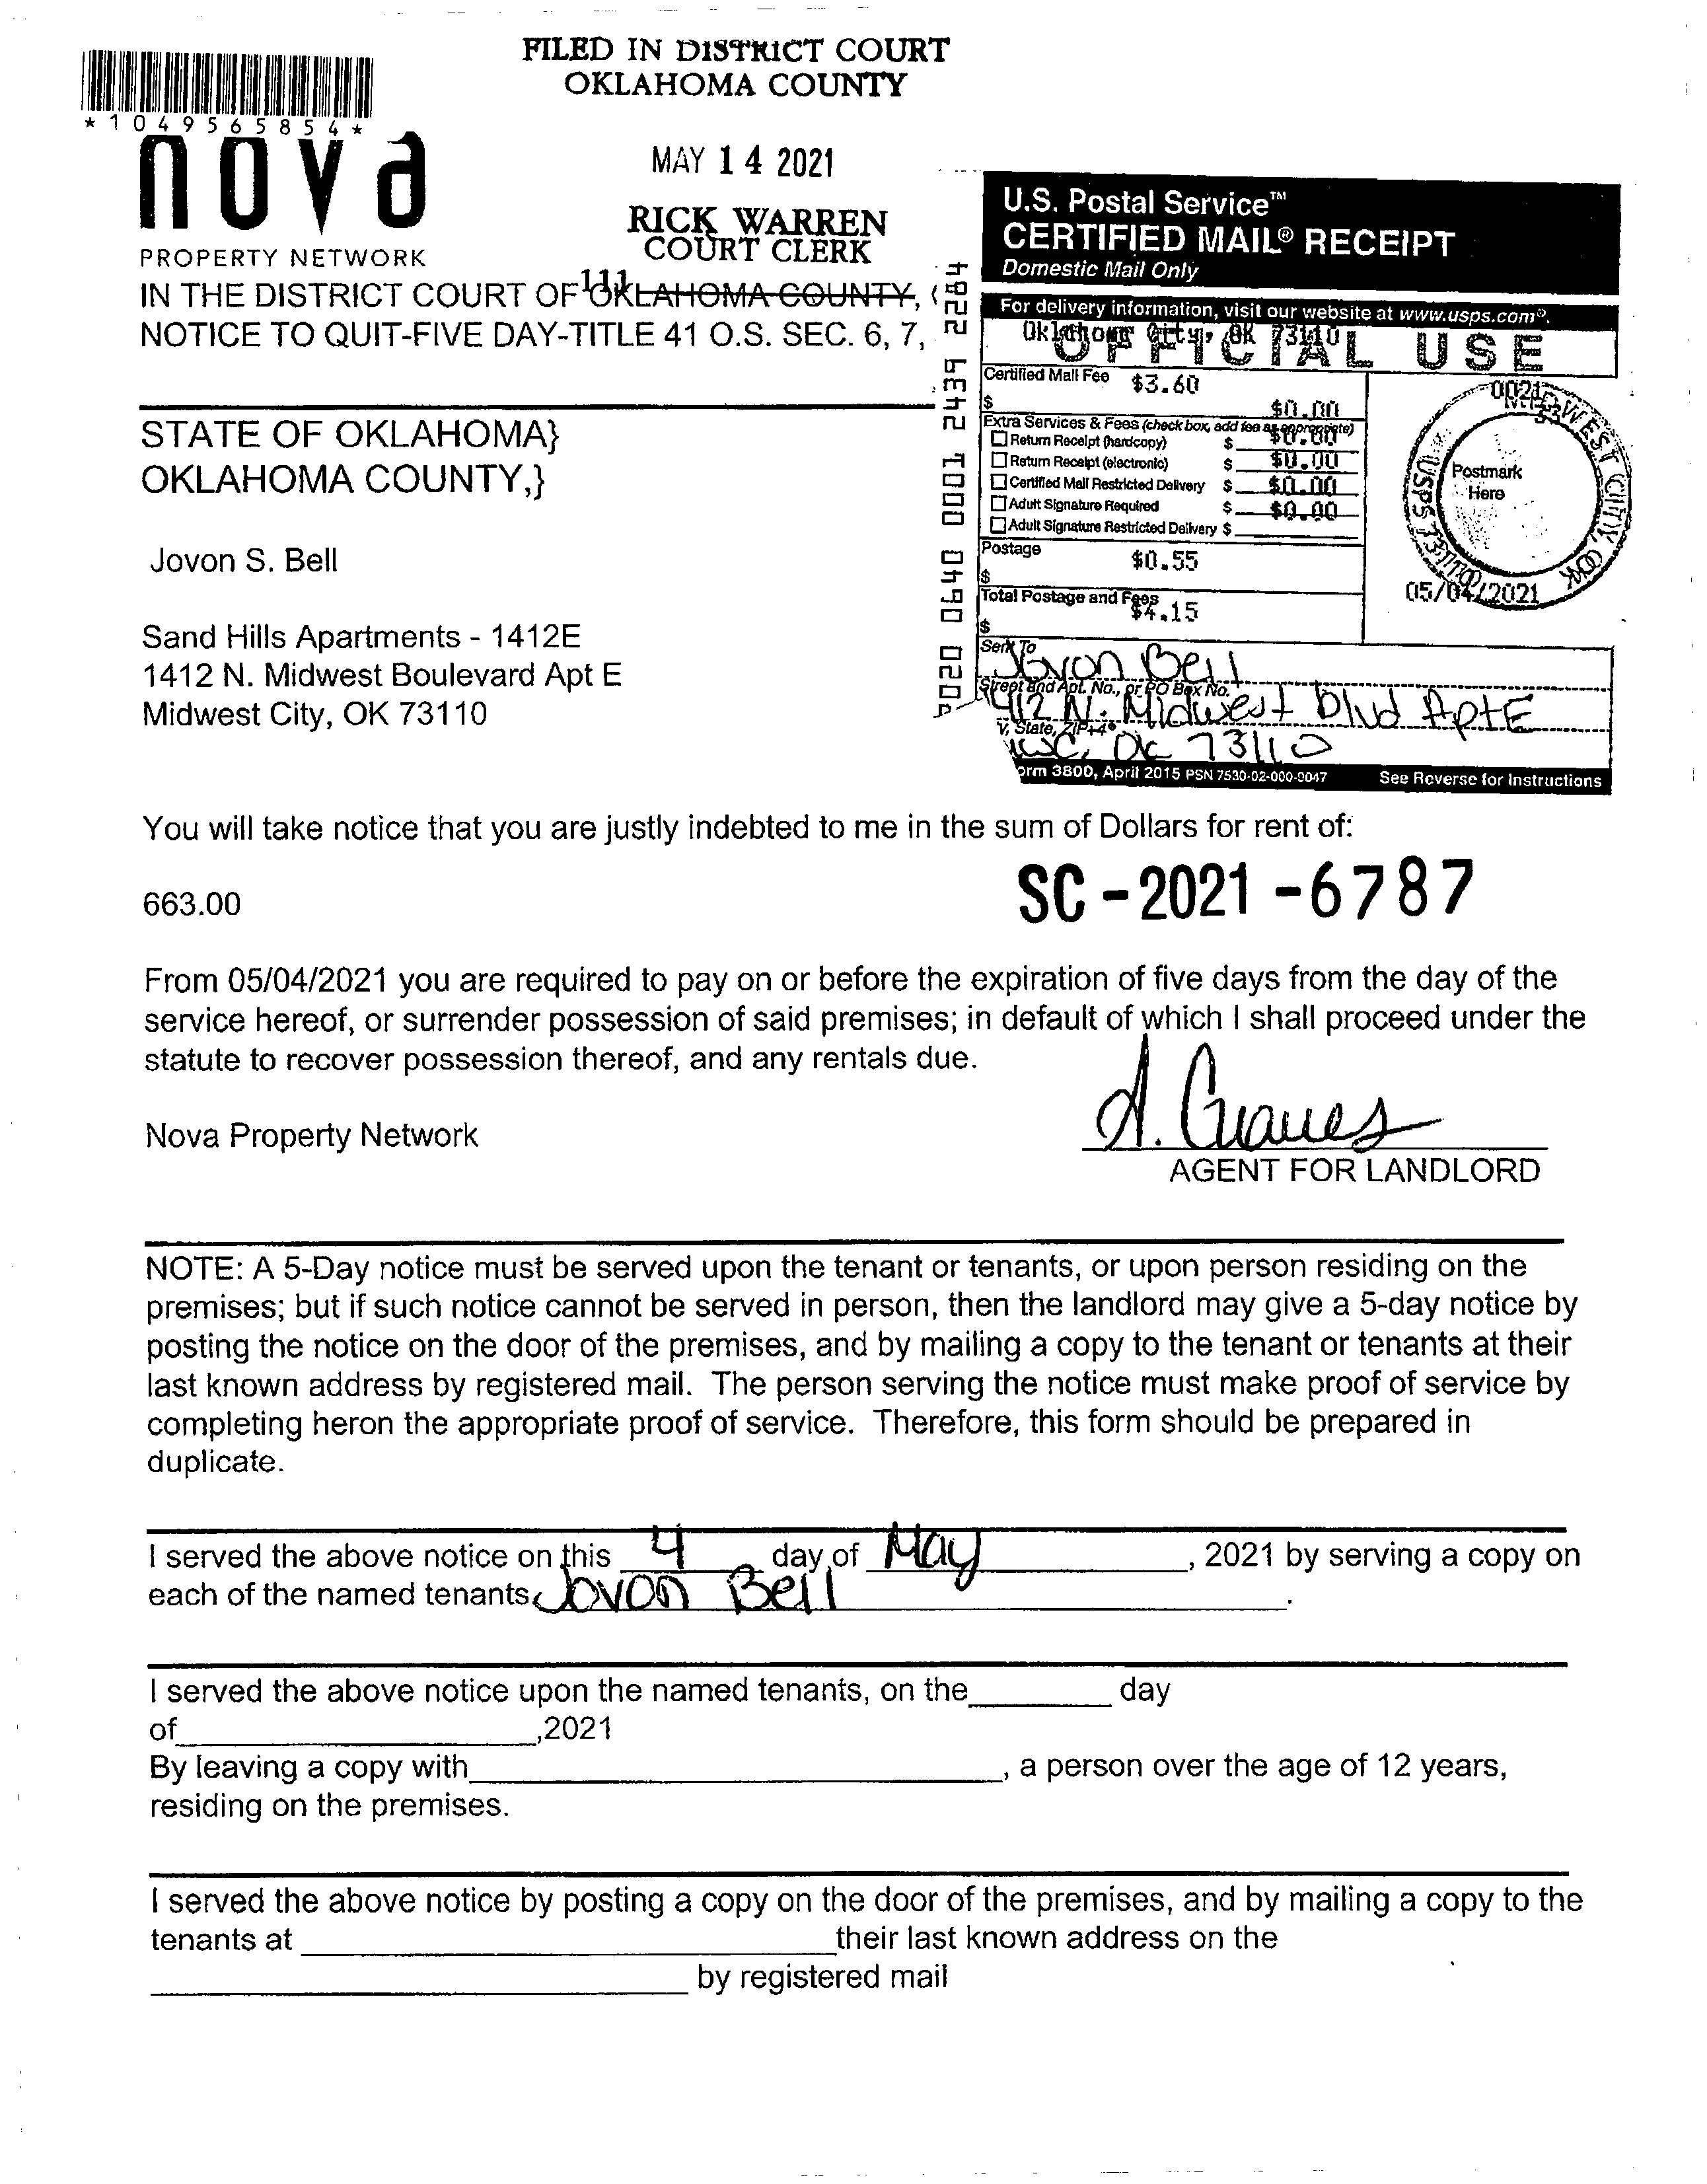 FILED IN DISTRICT COURT
OKLAHOMA COUNTY
*1049565854*
nova
PROPERTY NETWORK
MAY 14 2021
RICK WARREN
COURT CLERK
111
IN THE DISTRICT COURT OF OKLAHOMA COUNTY,
NOTICE TO QUIT-FIVE DAY-TITLE 41 O.S. SEC. 6, 7,
STATE OF OKLAHOMA}
OKLAHOMA COUNTY,}
Jovon S. Bell
Sand Hills Apartments - 1412E
1412 N. Midwest Boulevard Apt E
Midwest City, OK 73110
U.S. Postal Service™
CERTIFIED MAIL® RECEIPT
Domestic Mail Only
For delivery information, visit our website at www.usps.com®.
Oklahoma City, OK 73110
OFFICIAL USE
Certified Mail Fee $3.60
$
$0.00
Extra Services & Fees (check box, add fee as appropriate)
Return Receipt (hardcopy) $ $0.00
Return Receipt (electronic) $ $0.00
Certified Mail Restricted Delivery $ $0.00
Adult Signature Required $ $0.00
Adult Signature Restricted Delivery $
Postage $0.55
$
Total Postage and Fees $4.15
$
Postmark
Here
MIDWEST CITY, OK
USPS 73110
05/04/2021
Sent To
Jovon Bell
Street and Apt. No., or PO Box No.
1412 N. Midwest Blvd Apt E
y, State, ZIP+4®
MWC, OK 73110
orm 3800, April 2015 PSN 7530-02-000-9047 See Reverse for Instructions
You will take notice that you are justly indebted to me in the sum of Dollars for rent of:
663.00
SC-2021-6787
From 05/04/2021 you are required to pay on or before the expiration of five days from the day of the
service hereof, or surrender possession of said premises; in default of which I shall proceed under the
statute to recover possession thereof, and any rentals due.
Nova Property Network
A. Graves
AGENT FOR LANDLORD
NOTE: A 5-Day notice must be served upon the tenant or tenants, or upon person residing on the
premises; but if such notice cannot be served in person, then the landlord may give a 5-day notice by
posting the notice on the door of the premises, and by mailing a copy to the tenant or tenants at their
last known address by registered mail. The person serving the notice must make proof of service by
completing heron the appropriate proof of service. Therefore, this form should be prepared in
duplicate.
I served the above notice on this 4 day of May, 2021 by serving a copy on
each of the named tenants Jovon Bell.
I served the above notice upon the named tenants, on the day
of ,2021
By leaving a copy with , a person over the age of 12 years,
residing on the premises.
I served the above notice by posting a copy on the door of the premises, and by mailing a copy to the
tenants at their last known address on the
by registered mail